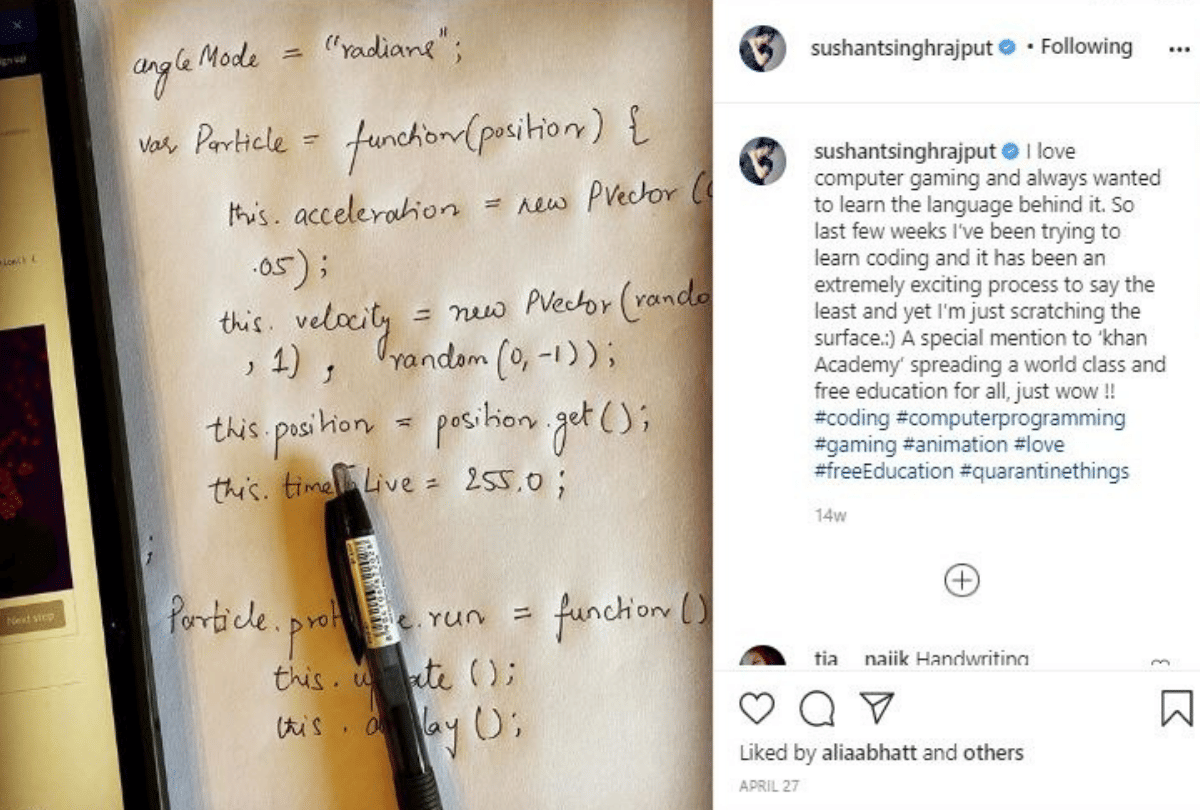 angleMode = "radians";
var Particle = function(position) {
this. acceleration = new PVector (
.05);
this. velocity = new PVector (rando
, 1) , random (0, -1));
this.position = position.get();
this. time Live = 255.0 ;
;
Particle. prot e. run = function ()
this. u ate ();
this . lay ();
Next step
sushantsinghrajput • Following
sushantsinghrajput I love
computer gaming and always wanted
to learn the language behind it. So
last few weeks I've been trying to
learn coding and it has been an
extremely exciting process to say the
least and yet I'm just scratching the
surface.:) A special mention to 'khan
Academy' spreading a world class and
free education for all, just wow !!
#coding #computerprogramming
#gaming #animation #love
#freeEducation #quarantinethings
14w
tia naiik Handwriting
Liked by aliaabhatt and others
APRIL 27